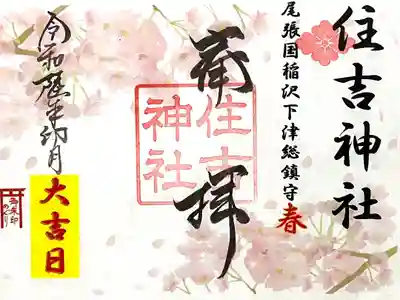 住吉神社
尾張国稲沢下津総鎮守 春
奉拝
住吉神社
令和 年卯月
大吉日